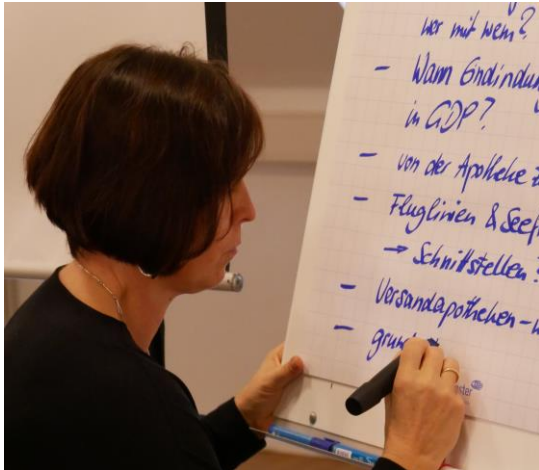 wer mit wem?
– Wann Einbindung
in GDP?
– von der Apotheke
– Fluglinien & Seef
→ Schnittstellen?
– Versandapotheken –
– grun